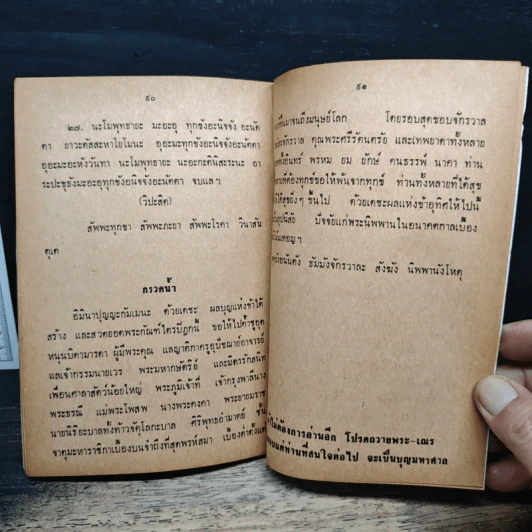 ๕๐
๒๗. นะโมพุทธายะ มะอะอุ ทุกขังอะนิจจัง อะนัต
ตา ยาวะตัสสะหาโยโมนะ อุอะมะทุกขังอะนิจจังอะนัตตา
อุอะมะอะหังวันทา นะโมพุทธายะ นะอะกะตินิสะระนะ อา
ระปะขุธังมะอะอุทุกขังอะนิจจังอะนัตตา จบแลฯ
(วิปะสิต)
สัพพะทุกขา สัพพะภะยา สัพพะโรคา วินาสัน
ตุเต
กรวดน้ำ
อิมินาปุญญะกัมเมนะ ด้วยเดชะ ผลบุญแห่งข้าได้
สร้าง และสวดยอดพระกัณฑ์ไตรปิฎกนี้ ขอให้ไปค้ำชูอุด
หนุนบิดามารดา ผู้มีพระคุณ และญาติกาครูอุปัชฌาย์อาจารย์
และเจ้ากรรมนายเวร พระมหากษัตริย์ และมิตรรักสนิท
เพื่อนศาลาสัตว์น้อยใหญ่ พระภูมิเจ้าที่ เจ้ากรุงพาลีนาง
พระธรณี แม่พระโพสพ นางพระคงคา พระยายมราช
นายนิริยะบาลทั้งท้าวจัตุโลกะบาล ศิริพุทธอำมาตย์ ชั้น
จาตุมะหาราชิกาเบื้องบนจำถึงที่สุดพรหัสมา เบื้องต่ำตั้งแต่
๕๑
โดยรอบสุดขอบจักรวาล
คุณพระศรีรัตนตรัย และเทพยาดาทั้งหลาย
พรหม ยม ยักษ์ คนธรรพ์ นาคา ท่าน
ที่ต้องทุกข์ขอให้พ้นจากทุกข์ ท่านทั้งหลายที่ได้สุข
ได้สุขยิ่งๆ ขึ้นไป ด้วยเดชะผลแห่งข้าอุทิศให้ไปนี้
ปัจจัยแก่พระนิพพานในอนาคตกาลเบื้อง
ธัมมังจักรวาละ สังฆัง นิพพานังโหตุ
ไม่ต้องการอ่านอีก โปรดถวายพระ-เณร
แด่ท่านที่สนใจต่อไป จะเป็นบุญมหาศาล